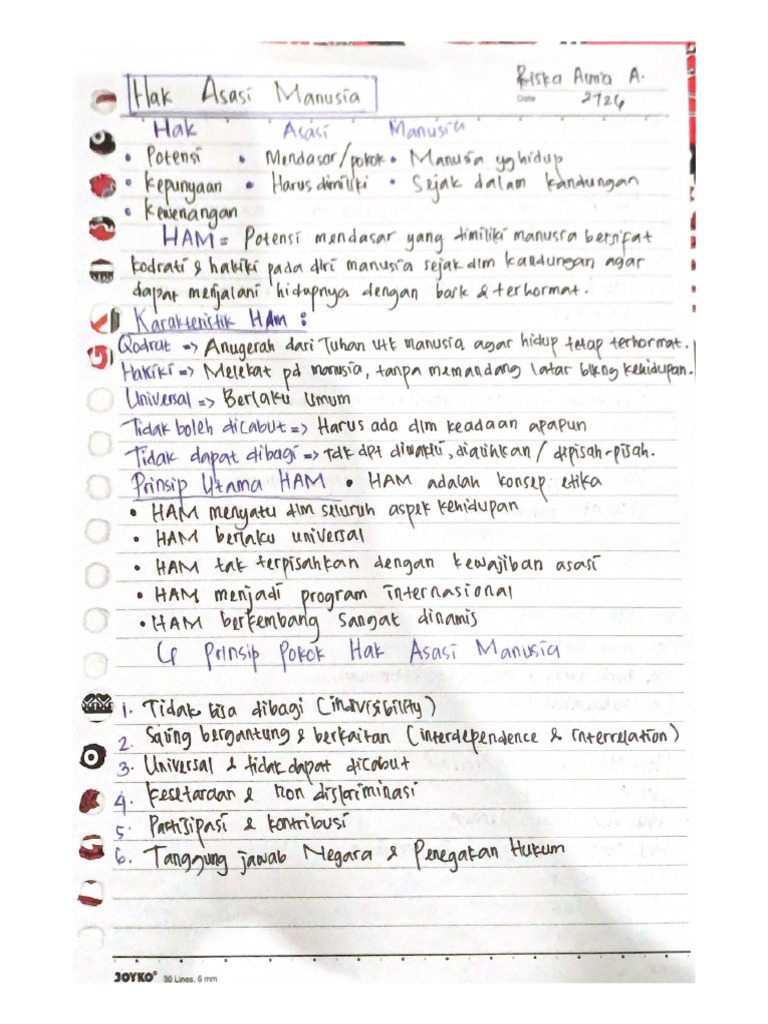 Riska Auna A.
Hak Asasi Manusia
Date 2724
Hak Asasi Manusia
• Potensi • Mendasar/pokok • Manusia yg hidup
• Kepunyaan • Harus dimiliki • Sejak dalam kandungan
• Kewenangan
HAM = Potensi mendasar yang dimiliki manusia bersifat
kodrati & hakiki pada diri manusia sejak dlm kandungan agar
dapat menjalani hidupnya dengan baik & terhormat.
Karakteristik HAM :
Qodrat => Anugerah dari Tuhan utk manusia agar hidup tetap terhormat.
Hakiki => Melekat pd manusia, tanpa memandang latar blkng kehidupan.
Universal => Berlaku Umum
Tidak boleh dicabut => Harus ada dlm keadaan apapun
Tidak dapat dibagi => tdk dpt diwakili, dialihkan / dipisah-pisah.
Prinsip Utama HAM • HAM adalah konsep etika
• HAM menyatu dlm seluruh aspek kehidupan
• HAM berlaku universal
• HAM tak terpisahkan dengan kewajiban asasi
• HAM menjadi program internasional
• HAM berkembang sangat dinamis
↳ Prinsip Pokok Hak Asasi Manusia
1. Tidak bisa dibagi (indivisibility)
2. Saling bergantung & berkaitan (interdependence & interrelation)
3. Universal & tidak dapat dicabut
4. Kesetaraan & non diskriminasi
5. Partisipasi & kontribusi
6. Tanggung jawab Negara & Penegakan Hukum
JOYKO 30 Lines, 6 mm